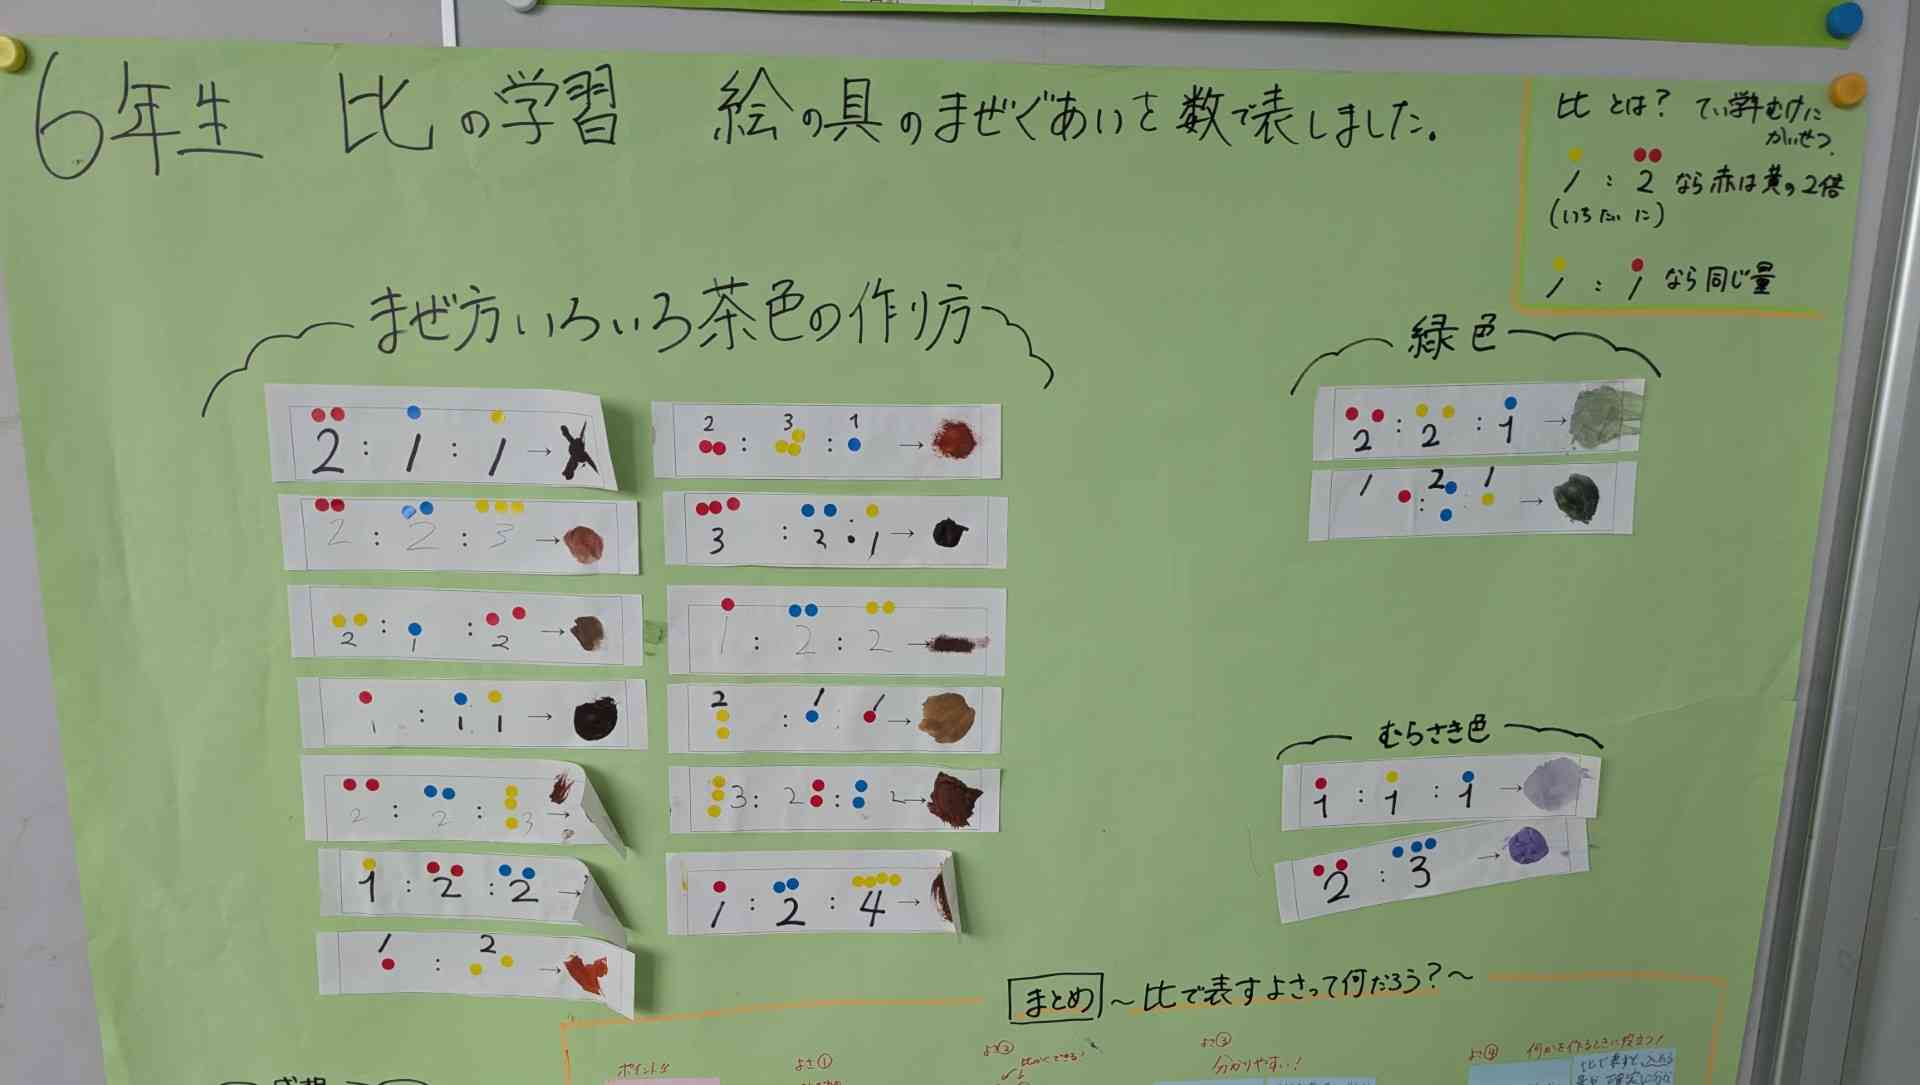 6年生 比の学習 絵の具のまぜぐあいを数で表しました。
比とは? てい学年むけに
かいせつ。
1 : 2 なら赤は黄の2倍
(いち たい に)
1 : 1 なら同じ量
まぜ方いろいろ茶色の作り方
2 : 1 : 1 →
2 : 2 : 3 →
2 : 1 : 2 →
1 : 1 : 1 →
2 : 2 : 3 →
1 : 2 : 2 →
1 : 2 →
2 : 3 : 1 →
3 : 2 : 1 →
1 : 2 : 2 →
2 : 1 : 1 →
3 : 2 : 2 →
1 : 2 : 4 →
緑色
2 : 2 : 1 →
1 : 2 : 1 →
むらさき色
1 : 1 : 1 →
2 : 3 →
まとめ ～比で表すよさって何だろう?～
ポイント
よさ①
よさ②
比かくできる!
よさ③
分かりやすい!
よさ④
何かを作るときに役立つ!
感想